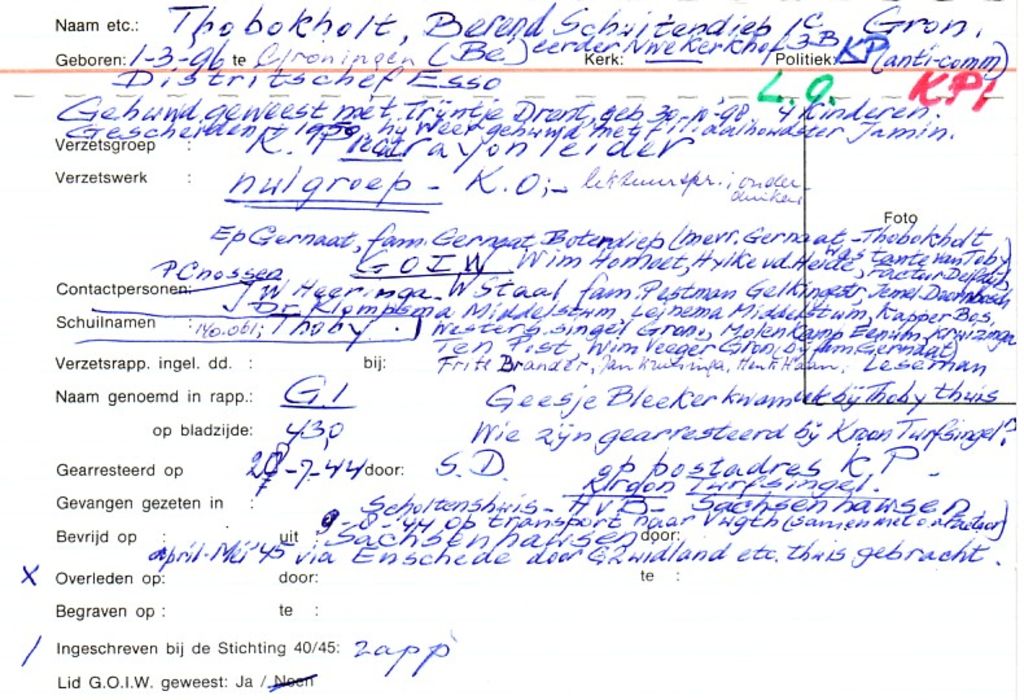 Naam etc.: Thobokholt, Berend Schuitendiep 1C Gron.
eerder Nwe Kerkhof 3B
Geboren: 1-3-96 te Groningen (Be) Kerk: Politiek: KP (anti-comm)
Distritschef Esso L.O. KP.
Gehuwd geweest met Trijntje Drent, geb. 30-11-98 4 kinderen.
Gescheiden 1950, hij weer gehuwd met filiaalhoudster Jamin.
Verzetsgroep : K.P. rayonleider
Verzetswerk : nulgroep - K.O; - onderduiken
Foto
Ep Gernaat, fam. Gernaat Boterdiep (mevr. Gernaat-Thobokholt
was tante van Toby)
P Cnossen GOIW Wim Homoet, Hylke vd. Heide,
Contactpersonen: J W Heeringa - W Staal fam. Pestman Gelkingestr,
Dr. Klompsma Middelstum, Leinema Middelstum, Kapper Bos,
Schuilnamen : Thoby. Westersingel Gron, Molenkamp Eenum, Kruizinga
Ten Post, Wim Veeger Gron. bij fam. Gernaat)
Verzetsrapp. ingel. dd. : bij: Frits Brander, Jan Kruisinga, Henk Haan; Leseman
Naam genoemd in rapp.: G1 Geesje Bleeker kwam ook bij Thoby thuis
op bladzijde: 430 Wie zijn gearresteerd bij Kroon Turfsingel?
Gearresteerd op 28-7-44 door: S.D. op postadres K.P.
Turfsingel.
Gevangen gezeten in : Scholtenshuis - HvB - Sachsenhausen
9-8-'44 op transport naar Vught (samen met o.a. Factor)
Bevrijd op : uit : Sachsenhausen door:
april-Mei '45 via Enschede door G. Zwidland etc. thuis gebracht.
X Overleden op: door: te :
Begraven op : te :
/ Ingeschreven bij de Stichting 40/45: rapp
Lid G.O.I.W. geweest: Ja / Neen